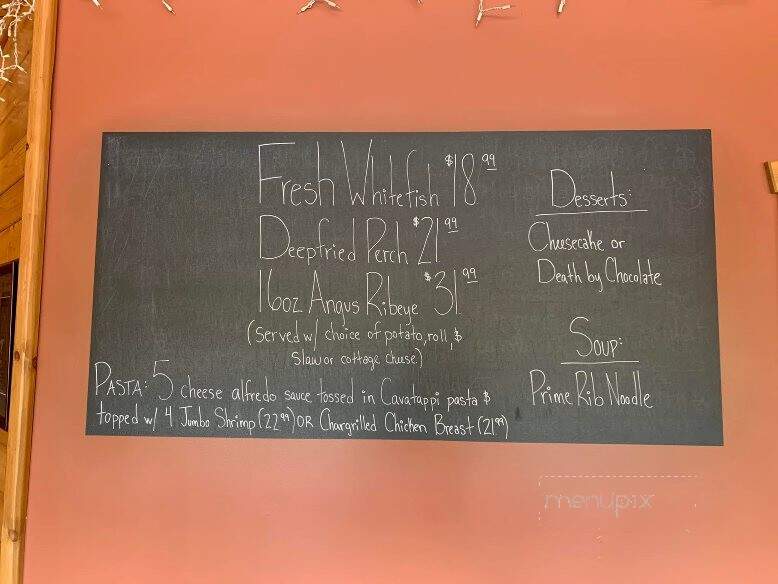 Fresh Whitefish $18.99
Deepfried Perch $21.99
16oz Angus Ribeye $31.99
(Served w/ choice of potato, roll, $
Slaw or cottage cheese)
PASTA: 5 cheese alfredo sauce tossed in Cavatappi pasta $
topped w/ 4 Jumbo Shrimp (22.99) OR Chargrilled Chicken Breast (21.99)
Desserts:
Cheesecake or
Death by Chocolate
Soup:
Prime Rib Noodle
menupix